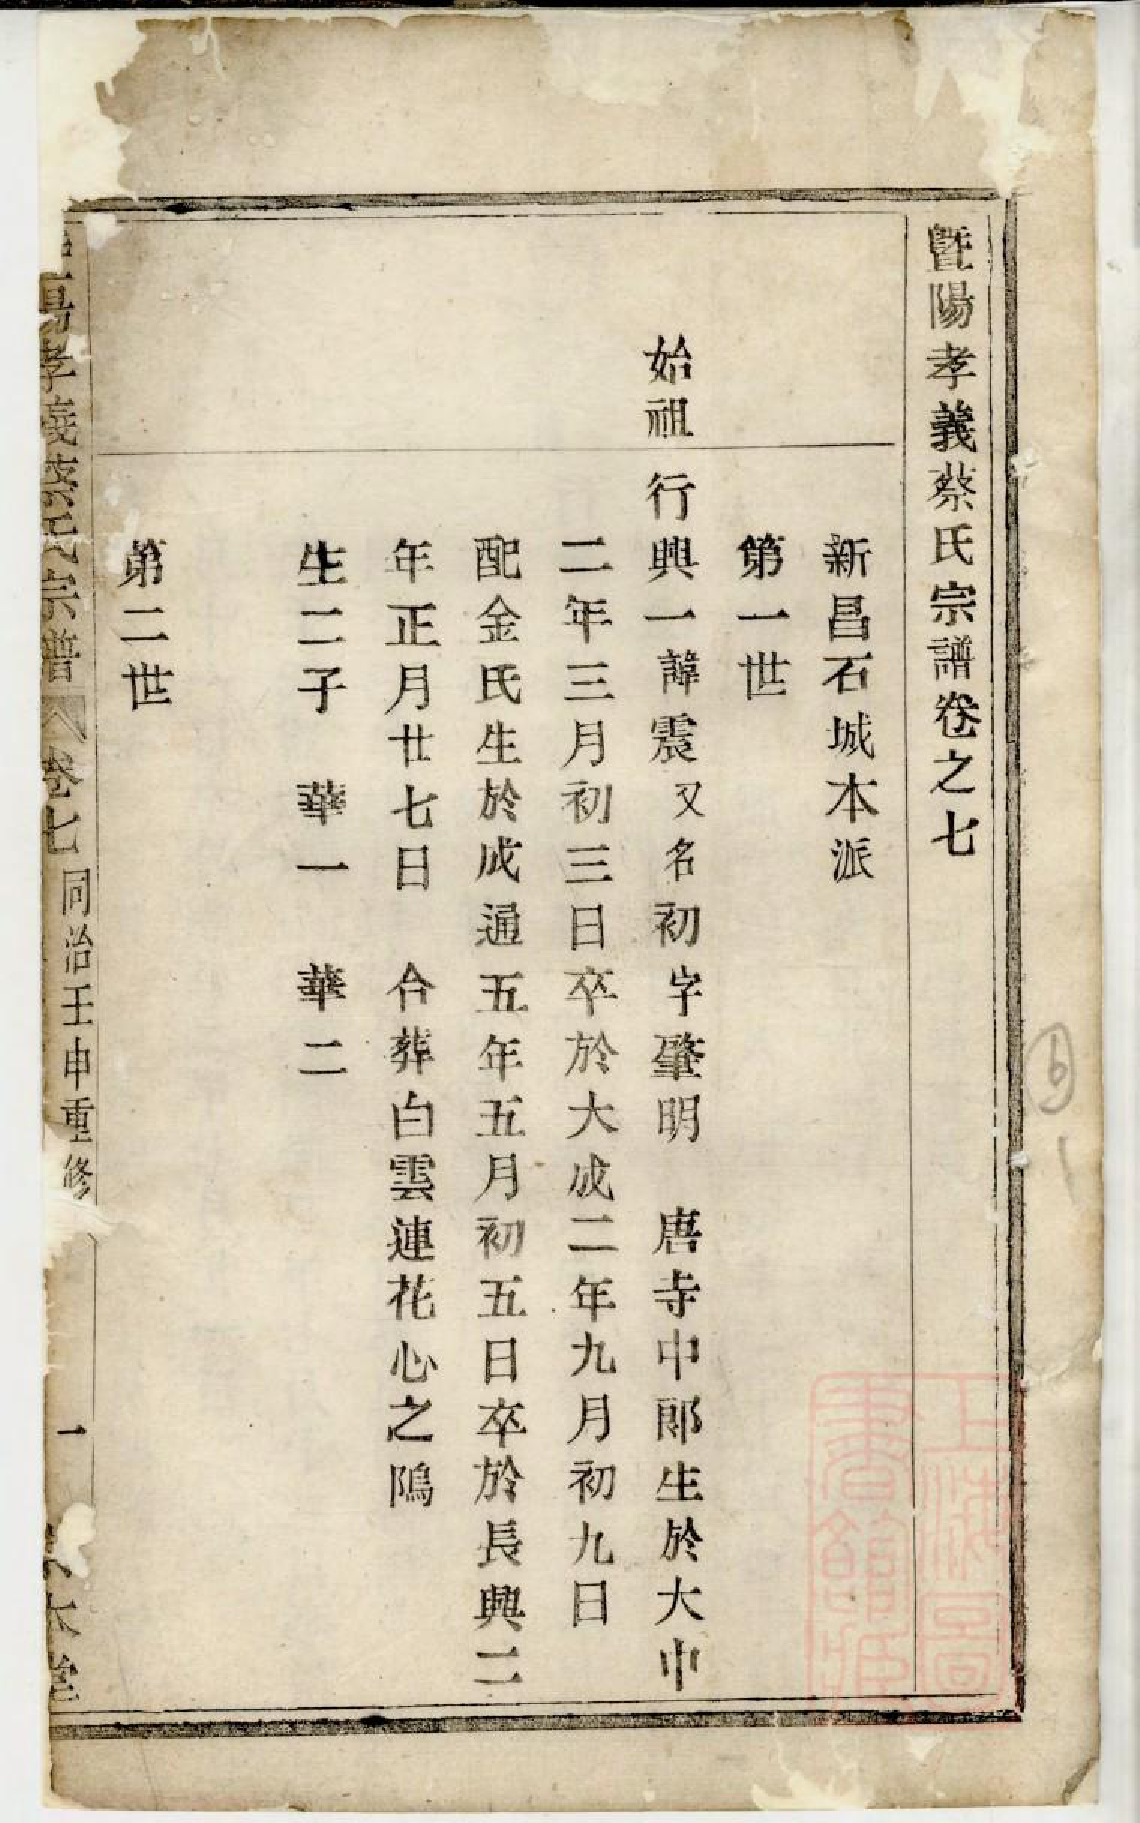 暨陽孝義蔡氏宗譜卷之七
新昌石城本派
第一世
始祖
行興一諱震又名初字肇明　唐寺中郎生於大中
二年三月初三日卒於大成二年九月初九日
配金氏生於成通五年五月初五日卒於長興二
年正月廿七日　合葬白雲連花心之隝
生二子　華一　華二
第二世
陽孝義蔡氏宗譜　卷七　同治壬申重修　一　本堂
上海圖書館藏